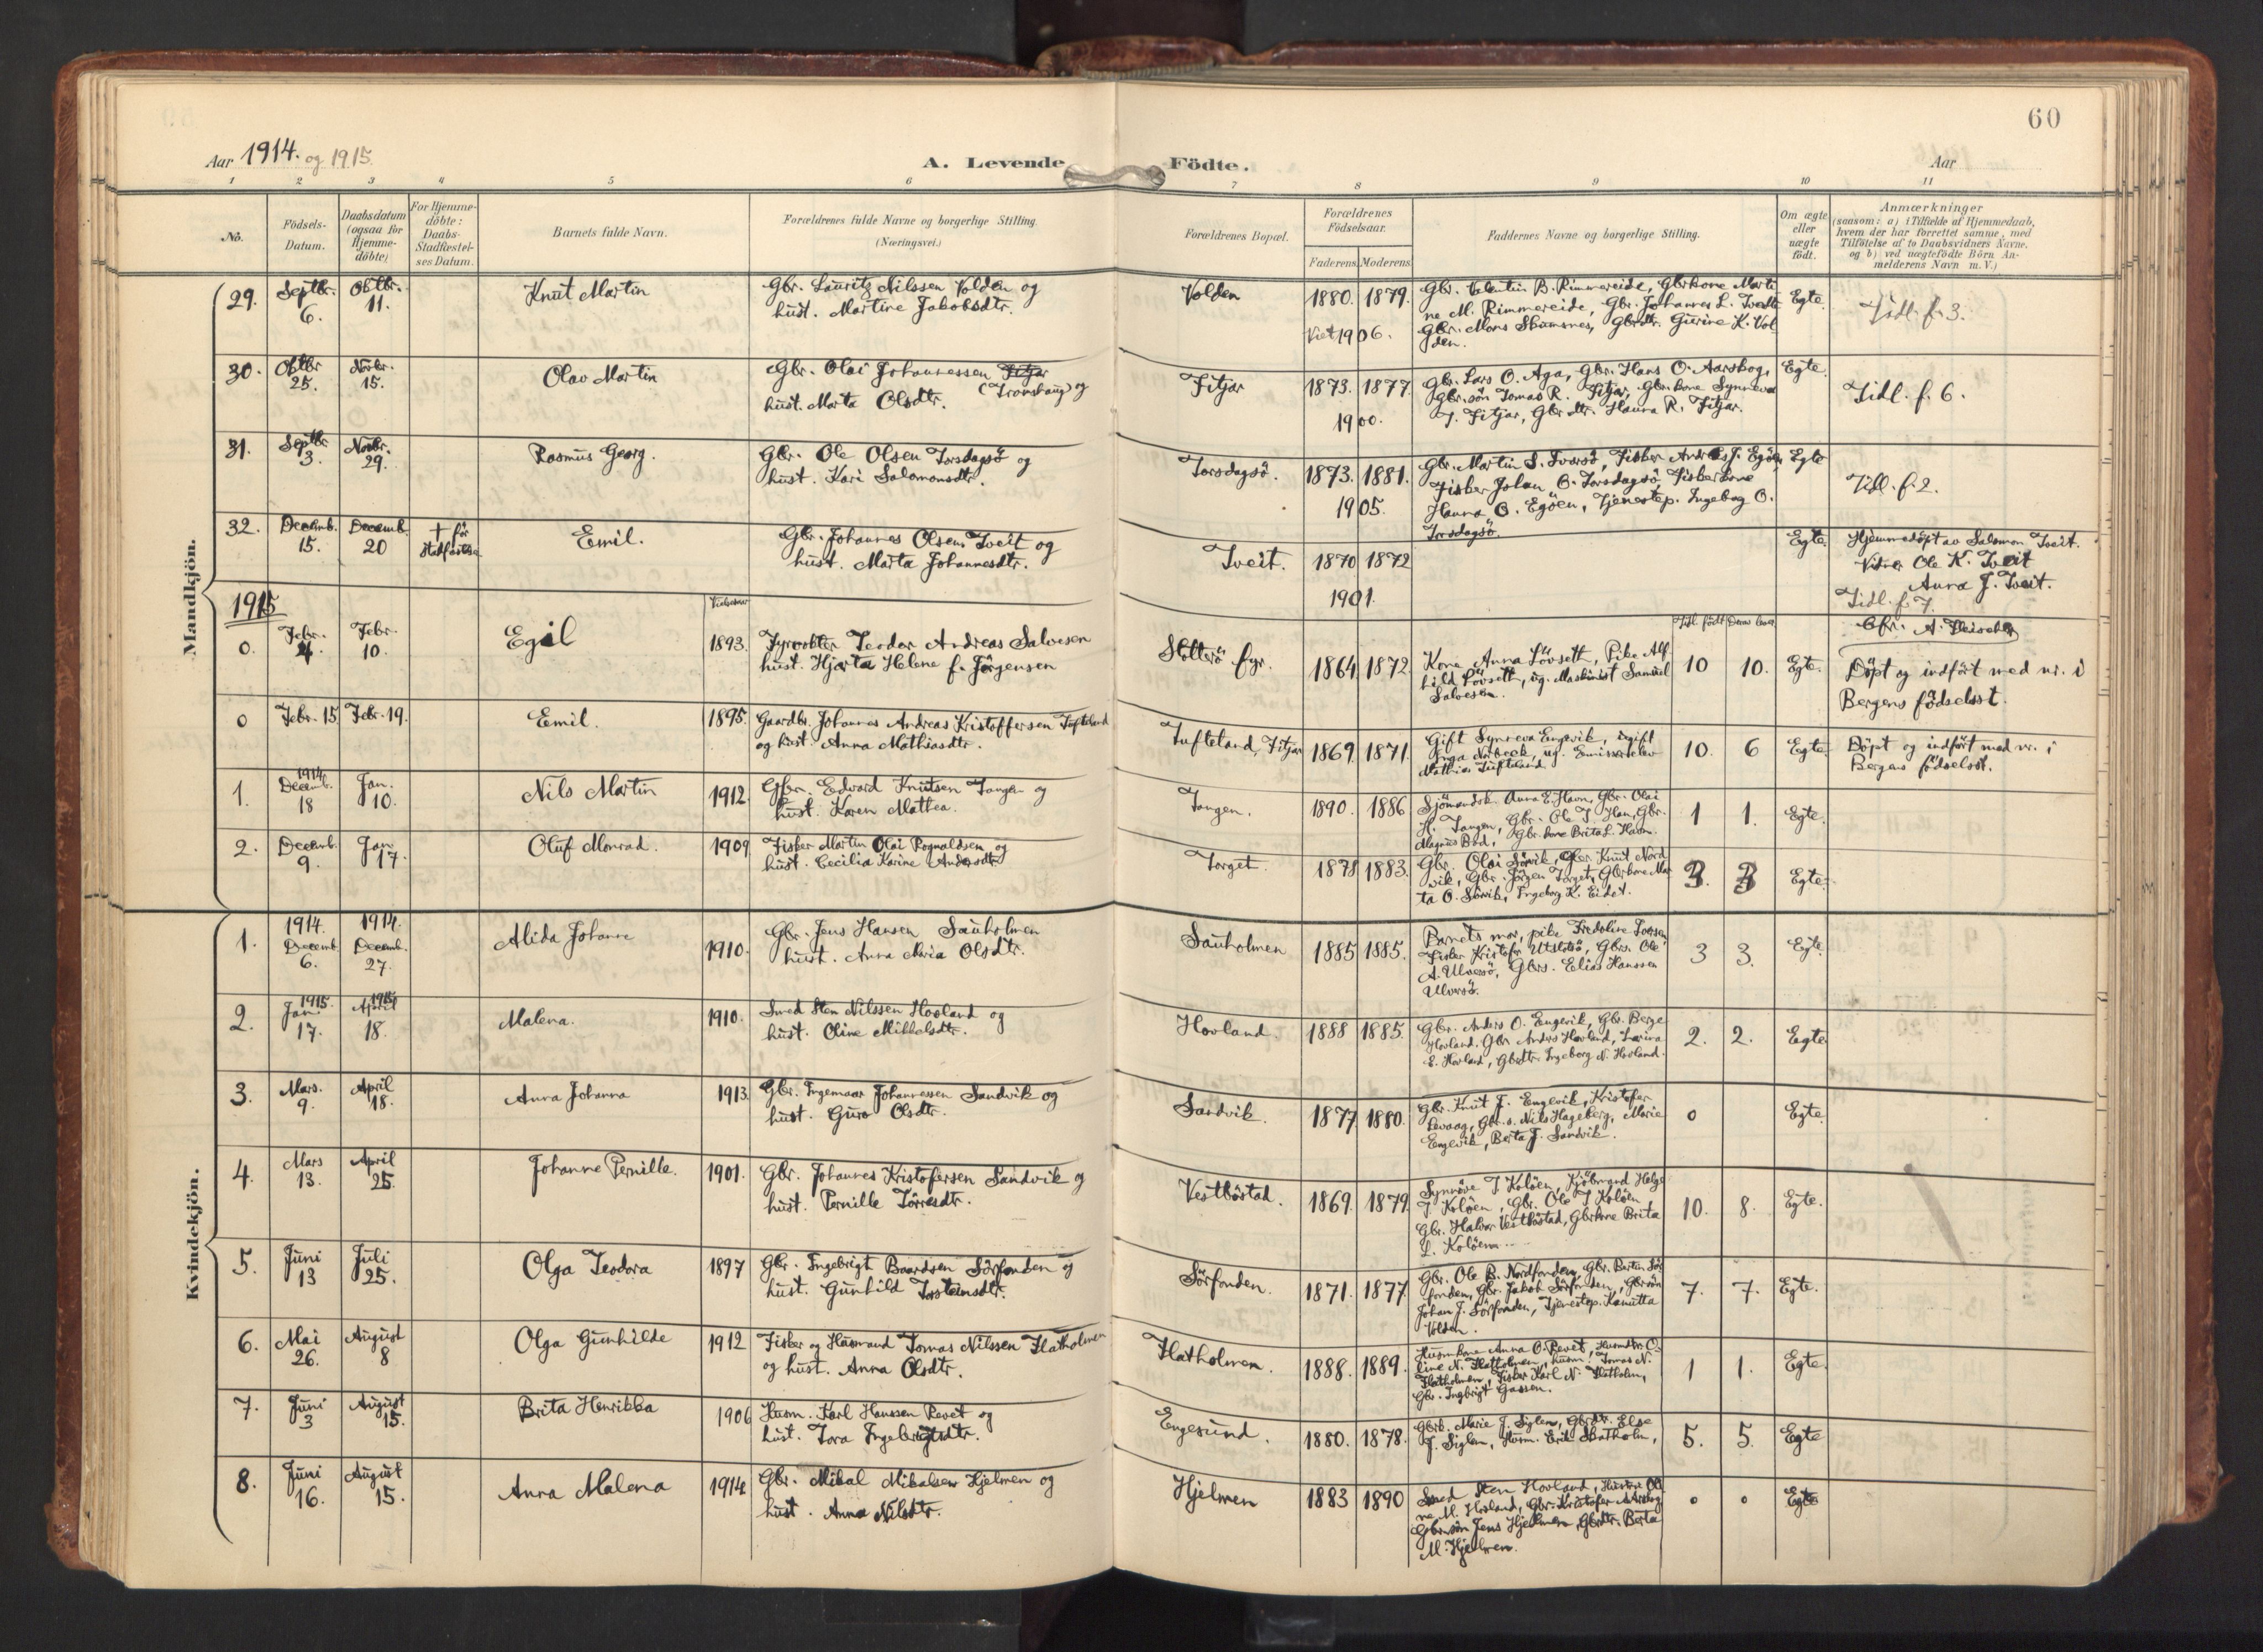 60
Aar 1914. og 1915.
A. Levende Födte.
Aar
1 2 3 4 5 6 7 8 9 10 11
No.
Födsels-Datum.
Daabsdatum (ogsaa for Hjemme-döbte)
For Hjemme-döbte: Daabs-Stadfæstel-ses Datum.
Barnets fulde Navn.
Forældrenes fulde Navne og borgerlige Stilling. (Næringsvei.)
Forældrenes Bopæl.
Forældrenes Födselsaar.
Faderens. Moderens.
Faddernes Navne og borgerlige Stilling.
Om ægte eller uægte födt.
Anmærkninger
(saasom: a) i Tilfælde af Hjemmedaab,
hvem der har forrettet samme, med
Tilföielse af to Daabsvidners Navne.
og b) ved uægtefödte Börn An-
melderens Navn m.V.)
Mandkjön.
29. Septbr. 6. Oktbr. 11. Knut Martin
Gbr. Lauritz Nilssen Volden og
hust. Martine Jakobsdtr.
Volden 1880. 1879.
Viet 1906.
Gbr. Valentin B. Rimmereide, Gbrkone Marti
ne M. Rimmereide, Gbr. Johannes L. Tvedte
Gbr. Mons Skumsnes, Gbrdtr. Gurine K. Vol
den.
Egte. Tidl. f. 3.
30. Oktbr 25. Novbr. 15. Olav Martin
Gbr. Olai Johannessen Fitjar
(Tranhaug) og
hust. Marta Olsdtr.
Fitjar 1873. 1877.
1900.
Gbr. Lars O. Aga, Gbr. Hans O. Aarskog,
Gbr.søn Tomas R. Fitjar, Gbr.kone Synneva
J. Fitjar, Gbr.dtr. Haura R. Fitjar.
Egte. Tidl. f. 6.
31. Septbr 3. Novbr. 29. Rasmus Georg.
Gbr. Ole Olsen Torsdagsö og
hust. Kari Salomonsdtr.
Torsdagsö. 1873. 1881.
1905.
Gbr. Martin S. Ivarsö, Fisker Andreas J. Egöen
Fisker Johan O. Torsdagsö, Fiskerkone
Hanna O. Egöen, Tjenestep. Ingebog O.
Torsdagsö.
Egte Tidl. f. 2.
32. Decemb. 15. Decemb. 20 † för stadfæstelse Emil.
Gbr. Johannes Olsen Tveit og
hust. Marta Johannesdtr.
Tveit. 1870 1872
1901.
Egte.
Hjemmedöpt av Salomon Tveit.
Vidner Ole K. Tveit
Anna J. Tveit.
Tidl. f. 7.
1915
Vielsesaar
Tidl. født Derav lever
0. Febr. 4. Febr. 10. Egil 1893.
Fyrvokter Teodor Andreas Salvesen
hust. Hjerta Helene f. Jörgensen
Slotterö fyr. 1864 1872
Kone Anna Lövseth, Pike Alf
hild Lövseth, ug. Maskinist Samuel
Salvesen.
10 10. Egte.
Döpt og indfört med nr. i
Bergens födselsst.
0 Febr. 15 Febr. 19. Emil. 1895.
Gaardbr. Johannes Andreas Kristoffersen Tufteland
og hust. Anna Mathiasdtr.
Tufteland, Fitjar 1869. 1871.
Gift Synneva Engevik, ugift
Inga Norbeck, ug. Emissærelev
Mathias Tufteland
10. 6 Egte.
Döpt og indfört med nr. i
Bergens födselsst.
1. 1914 Decemb. 18 Jan. 10. Nils Martin 1912
Gbr. Edvard Knutsen Tangen og
hust. Karen Mathea.
Tangen. 1890. 1886
Sjömandsk. Anna E. Havn, Gbr. Olai
H. Tangen, Gbr. Ole J. Havn, Gbr.
Magnus Bød, Gbr.kone Brita L. Havn.
1 1. Egte.
2. Decemb. 9. Jan 17. Oluf Monrad. 1909
Fisker Martin Olai Rognaldsen og
hust. Cecilia Karine Andersdtr
Torget. 1878 1883.
Gbr. Olai Sörvik, Gbr Knut Nord
vik, Gbr. Jörgen Torget, Gbr.kone Mar
ta O. Sörvik, Ingeborg K. Eidet.
3. 3 Egte.
Kvindekjön.
1. 1914. Decemb. 6. 1914. Decemb. 27. Alida Johanne 1910.
Gbr. Jens Hansen Sauholmen
hust. Anna Maria Olsdtr.
Sauholmen 1885 1885.
Barnets mor, pike Fredoline Ivarsen
Fisker Kristofer Utslotsö, Gbrs. Ole
A. Ulversö, Gbrs. Elias Hanssen
Ulversö.
3 3. Egte.
2. 1915. Jan. 17. 1915 April 18. Malena. 1910.
Smed Sten Nilssen Hovland og
hust. Oline Mikkelsdtr.
Hovland. 1888 1885.
Gbr. Anders O. Engevik, Gbr. Berge
Hovland. Gbr Anders Hovland, Lavina
E. Hovland, Gbrdtr. Ingeborg N. Hovland.
2. 2. Egte
3. Mars. 9. April 18. Anna Johanna 1913.
Gbr. Ingemaar Johannessen Sandvik og
hust. Guro Olsdtr.
Sandvik. 1877 1880.
Gbr. Knut J. Engevik, Kristofer
Levaag, Gbr.s. Nils Hageberg, Marie
Engevik, Berta J. Sandvik.
0 Egte
4. Mars 13. April 25. Johanne Pernille. 1901.
Gbr. Johannes Kristofersen Sandvik og
hust. Pernille Törresdtr.
Vestböstad. 1869. 1879.
Synnöve J. Kolöen, Kjöbmand Helge
J. Kolöen, Gbr. Ole J. Kolöen
Gbr. Halvor Vestböstad, Gbrkone Brita
L. Kolöen
10. 8. Egte.
5. Juni 13 Juli 25. Olga Teodora 1897
Gbr. Ingebrigt Baardsen Sörfonden og
hust. Gunhild Torsteinsdtr.
Sörfonden. 1871. 1877.
Gbr. Ole B. Nordfonden, Gbr. Bertin Sör
fonden, Gbr. Jakob Sörfonden, Gbrsön
Johan J. Sörfonden, Tjenestep. Kanutta
Volden.
7. 7. Egte.
6. Mai 26. August 8 Olga Gunhilde 1912
Fisker og Husmand Tomas Nilssen Flatholmen
og hust. Anna Olsdtr.
Flatholmen. 1888. 1889.
Husm.kone Anna O. Revet, Husmdtr. O
line N. Flatholmen, husm. Tomas N.
Flatholmen, Fisker Karl N. Flatholm,
Gbr. Ingbrigt Gaasen.
1 1. Egte.
7. Juni 3 August 15. Brita Henrikka 1906
Husm. Karl Hanssen Revet og
hust. Tora Ingebrigtsdtr.
Engesund. 1880. 1878.
Gbrk. Marie J. Siglen, Gbrdtr. Else
J. Siglen, Husm. Erik Skatholm,
5. 5. Egte
8. Juni 16. August 15. Anna Malena 1914
Gbr. Mikal Mikalsen Hjelmen og
hust. Anna Nilsdtr.
Hjelmen 1883 1890
Smed Sten Hovland, Hustru Oli
ne M. Hovland, Gbr. Kristofer Aarskog
Gbrsön Jens Hjelmen, Gbrdtr. Berta
M. Hjelmen.
0 0 Egte